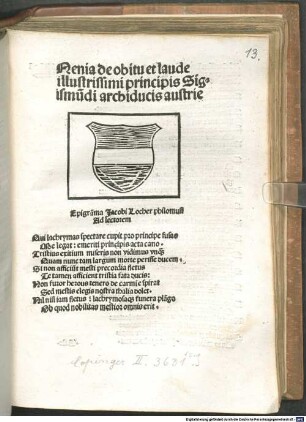 13.
Nenia de obitu et laude
illustrissimi principis Sig-
ismūdi archiducis austrie
Epigrāma Jacobi Locher philomusi
Ad lectorem
Qui lachrymas spectare cupit pro principe fusas
Me legat: emeriti principis acta cano.
Tristius exitium miseris non vidimus vnq̄
Quam nunc tam largum morte perisse ducem.
Si non afficiūt mesti precordia fletus
Te tamen afficient tristia fata ducis:
Non furor herous tenero de carmīe spirat
Sed mestis elegis nostra thalia dolet.
Nil nisi iam fletus: lachrymosaq̄ funera plāgo
Ob quod nobilitas mestior omnis erit.
II. 3631